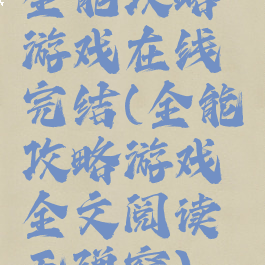 全能攻略
游戏在线
完结(全能
攻略游戏
全文阅读
无弹窗)